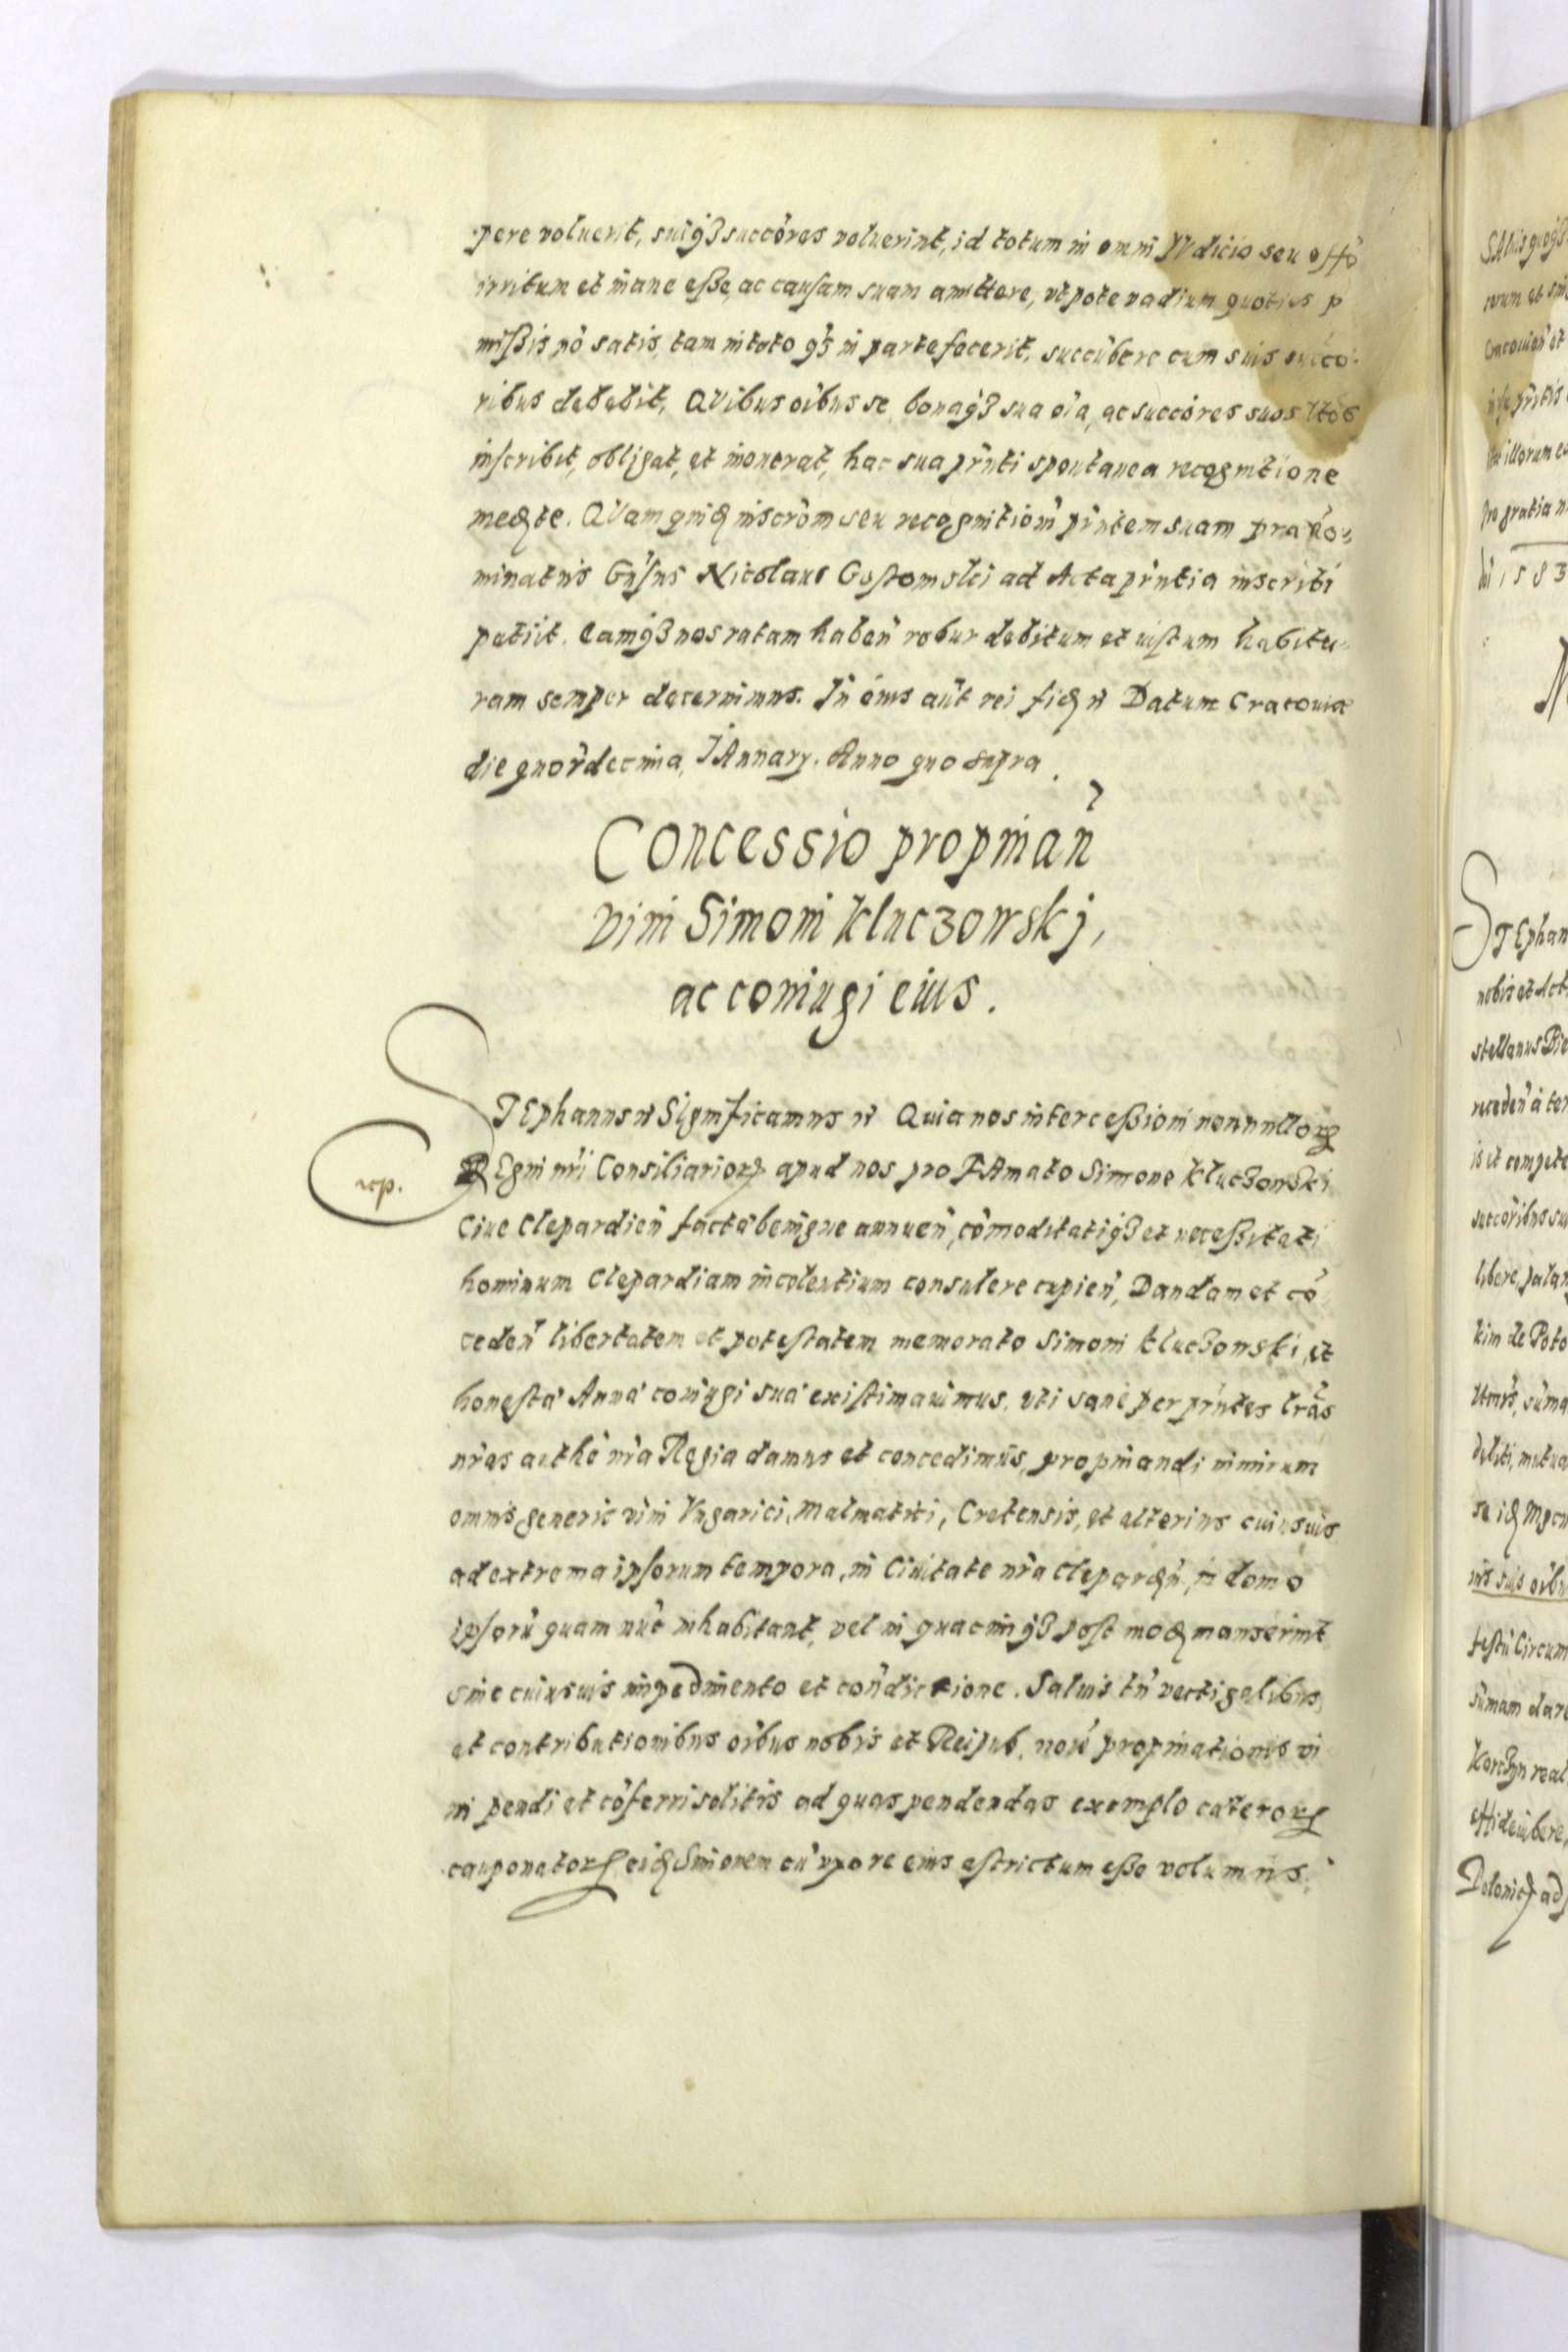 pere voluerit, suiq3 succõres voluerint, id totum in omni Iudicio seu offõ
irritum et inane esse, ac causam suam amittere, utpote vadium quoties p
missis nõ satis, tam in toto q3 in parte fecerit, succubere cum suis succo
ribus debebit, Quibus oibus se bonaq3 sua oia, ac succõres suos
inscribit, obligat, et inonerat, hac sua pñti spontanea recognitione
mediante. Quam quidem inscrõm seu recognitioñ pñtem suam praño=
minatus Gñsus Nicolaus Gostomski ad Acta pñtia inscribi
petiit. Eamq3 nos ratam habeñ robur debitum et iustum habitu=
ram semper decernimus. In cuius aũt rei fidem etc Datum Cracouiæ
die quordecima, IAnuarij. Anno quo supra.
Concessio propinañ
vini Simoni Kluczowskj,
ac coniugi eius.
STEphanus etc Significamus etc Quia nos intercessioni nonnullorum
REgni nri Consiliariorum apud nos pro FAmato Simone Kluczowski
Ciue Clepardieñ facta benigne annueñ, cõmoditatiq3 et necessitati
hominum Clepardiam incolentium consulere cupieñ, Dandam et cõ
cedeñ libertatem et potestatem memorato Simoni Kluczowski, et
honesta Anna coniugi sua existimauimus, uti sane per pñtes lrãs
nras autho nra Regia damus et concedimus, propinandi nimirum
omnis generis vini Ungarici, Malmatici, Cretensis, et alterius cuiusuis
ad extrema ipsorum tempora, in Ciuitate nra Clepardieñ, in domo
ipsorũ quam nũc inhabitant, vel in quacunq3 post modum manserint
sine cuiusuis impedimento et cõndictione. Saluis tñ vectigalibus,
et contributionibus oibus nobis et Reipub. noie propinationis vi
ni pendi et cõferri solitis ad quas pendendas exemplo cæterorum
cauponatorum eidem Simonem cũ uxore eius astrictum esse volumus.
rep.